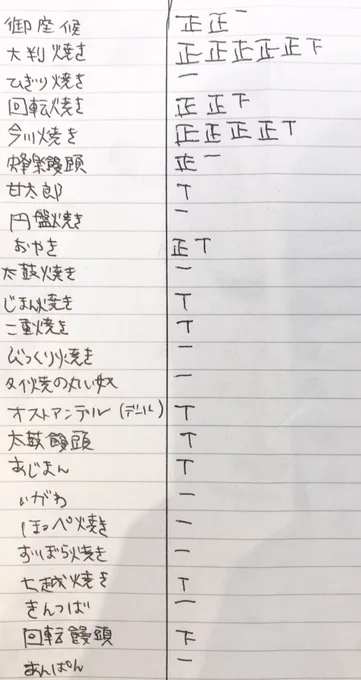 御座候 正正一
大判焼き 正正正正正下
ひぎり焼き 一
回転焼き 正正下
今川焼き 正正正正丅
蜂楽饅頭 正一
甘太郎 丅
円盤焼き 一
おやき 正丅
太鼓焼き 一
じまん焼き 丅
二重焼き 丅
びっくり焼き 一
タイ焼の丸い奴 一
オストアンデル(デール) 丅
太鼓饅頭 丅
あじまん 丅
いがわ 一
ほっぺ焼き 一
ずぼら焼き 一
七越焼き 丅
きんつば 一
回転饅頭 下
あんぱん 一